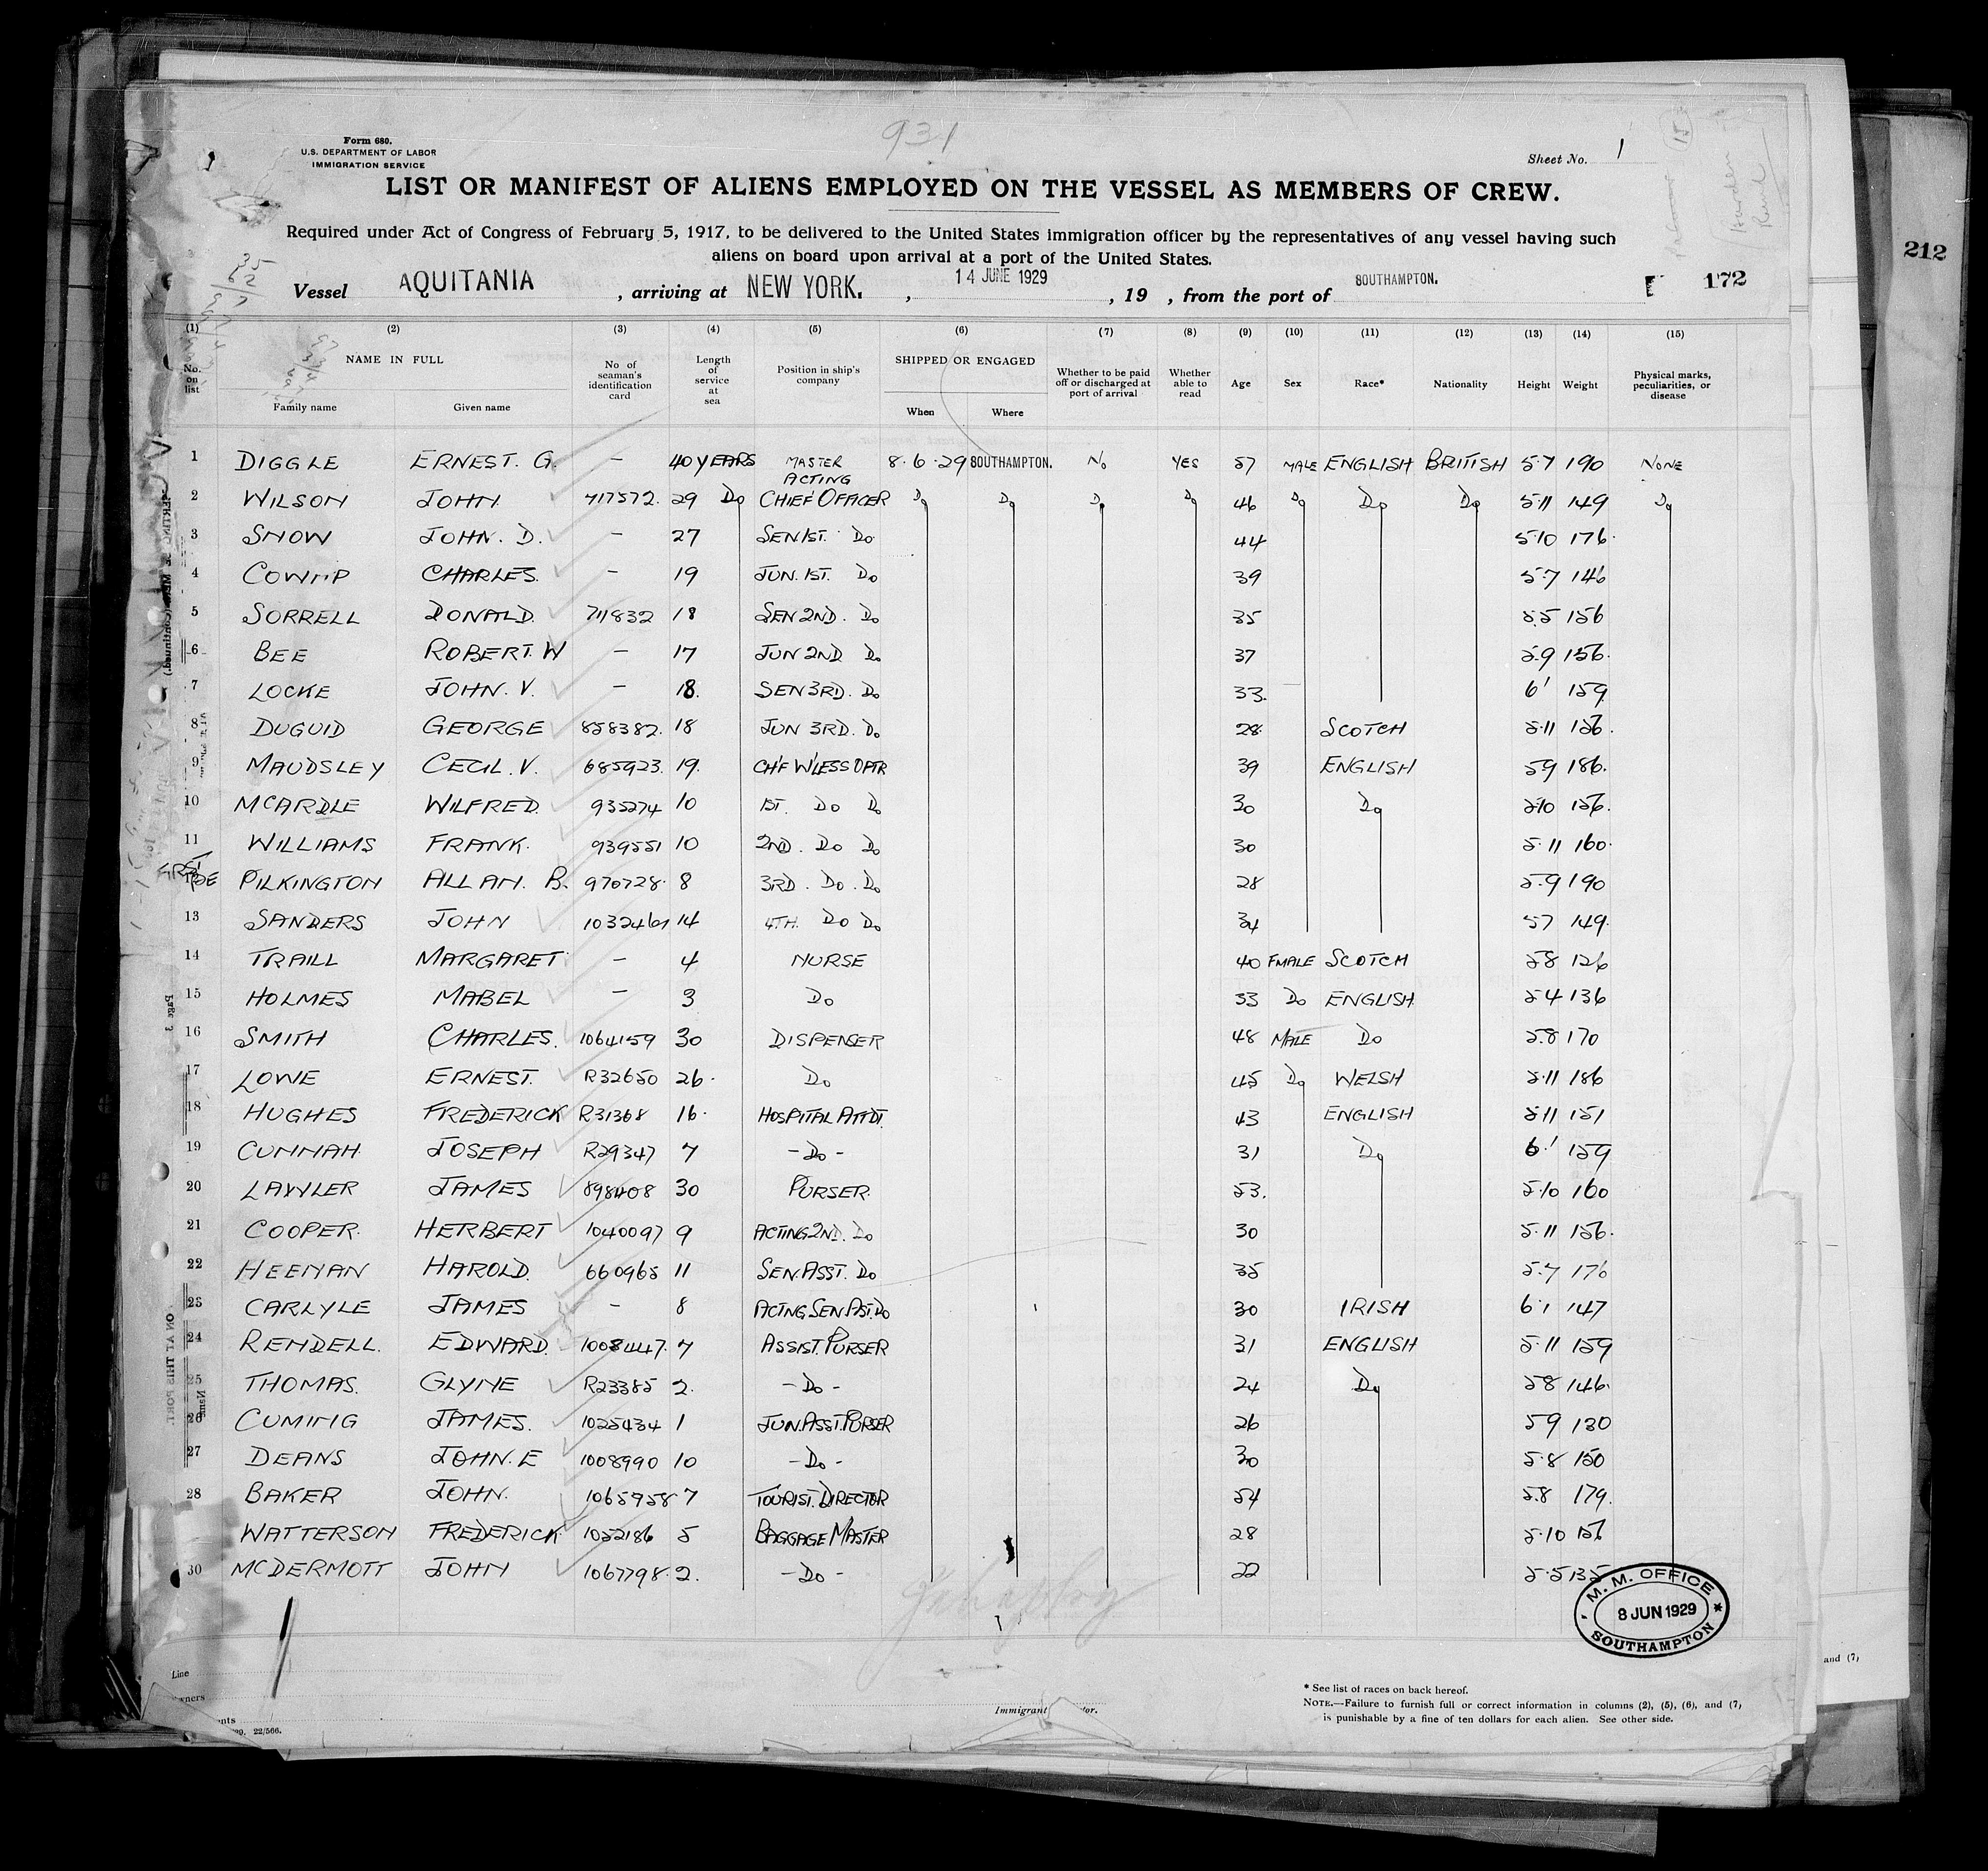 931
Form 680.
U.S. DEPARTMENT OF LABOR
IMMIGRATION SERVICE
Sheet No. 1
LIST OR MANIFEST OF ALIENS EMPLOYED ON THE VESSEL AS MEMBERS OF CREW.
Required under Act of Congress of February 5, 1917, to be delivered to the United States immigration officer by the representatives of any vessel having such
aliens on board upon arrival at a port of the United States.
212
Vessel AQUITANIA , arriving at NEW YORK. , 14 JUNE 1929 , 19 , from the port of SOUTHAMPTON. 172
(1) (2) (3) (4) (5) (6) (7) (8) (9) (10) (11) (12) (13) (14) (15)
No. on list NAME IN FULL Family name Given name No of seaman's identification card Length of service at sea Position in ship's company SHIPPED OR ENGAGED When Where Whether to be paid off or discharged at port of arrival Whether able to read Age Sex Race* Nationality Height Weight Physical marks, peculiarities, or disease
1 DIGGLE ERNEST. G. — 40 YEARS MASTER 8·6·29 SOUTHAMPTON. No YES 57 MALE ENGLISH BRITISH 5·7 190 NONE
2 WILSON JOHN 717572. 29 Do ACTING CHIEF OFFICER Do Do Do Do 46 Do Do Do 5·11 149 Do
3 SNOW JOHN. D. — 27 SEN 1ST. Do 44 5·10 176.
4 COWMP CHARLES. — 19 JUN. 1ST. Do 39 5·7 146
5 SORRELL DONALD. 711832 18 SEN 2ND. Do 35 5.5 156
6 BEE ROBERT. W — 17 JUN 2ND Do 37 5.9 156.
7 LOCKE JOHN. V. — 18. SEN 3RD. Do 33. 6' 159
8 DUGUID GEORGE 858382. 18 JUN 3RD. Do 28 SCOTCH 5·11 156.
9 MAUDSLEY CECIL. V. 685923. 19. CH'F W'LESS OPTR 39 ENGLISH 5.9 186.
10 MCARDLE WILFRED. 935274 10 1ST. Do Do 30 Do 5·10 156.
11 WILLIAMS FRANK. 939551 10 2ND. Do Do 30 5·11 160.
PILKINGTON ALLAN. B. 970728. 8 3RD. Do. Do 28 5.9 190
13 SANDERS JOHN 1032461 14 4TH. Do Do 34 57 149.
14 TRAILL MARGARET — 4 NURSE 40 FMALE SCOTCH 5.8 126
15 HOLMES MABEL — 3 Do 33 Do ENGLISH 5.4 136
16 SMITH CHARLES. 1064159 30 DISPENSER 48 MALE Do 5.8 170
17 LOWE ERNEST. R32650 26. Do 45 Do WELSH 5·11 186
18 HUGHES FREDERICK R31368 16. HOSPITAL ATTDT. 43 ENGLISH 5·11 151
19 CUNNAH JOSEPH R29347 7 -Do- 31 Do 6' 159
20 LAWLER JAMES 898408 30 PURSER. 53. 5·10 160
21 COOPER. HERBERT 1040097 9 ACTING 2ND. Do 30 5·11 156.
22 HEENAN HAROLD. 660965 11 SEN. ASST. Do 35 5.7 176
23 CARLYLE JAMES — 8 ACTING SEN AST. Do 30 IRISH 6·1 147
24 RENDELL. EDWARD. 1008447. 7 ASSIST. PURSER 31 ENGLISH 5·11 159
25 THOMAS. GLYNE R23385 2. -Do- 24 Do 5.8 146.
26 CUMING JAMES. 1025434 1 JUN. ASST. PURSER 26 5.9 130
27 DEANS JOHN. E 1008990 10 -Do- 30 5·8 150
28 BAKER JOHN. 1065958 7 TOURIST. DIRECTOR 54 5.8 179.
WATTERSON FREDERICK 1052186 5 BAGGAGE MASTER 28 5·10 156
30 MCDERMOTT JOHN 1067798. 2. -Do- 22 5·5 135
M. M. OFFICE
8 JUN 1929
SOUTHAMPTON
Line
and (7,
* See list of races on back hereof.
NOTE.—Failure to furnish full or correct information in columns (2), (5), (6), and (7,
is punishable by a fine of ten dollars for each alien. See other side.
Immigrant
22/566.